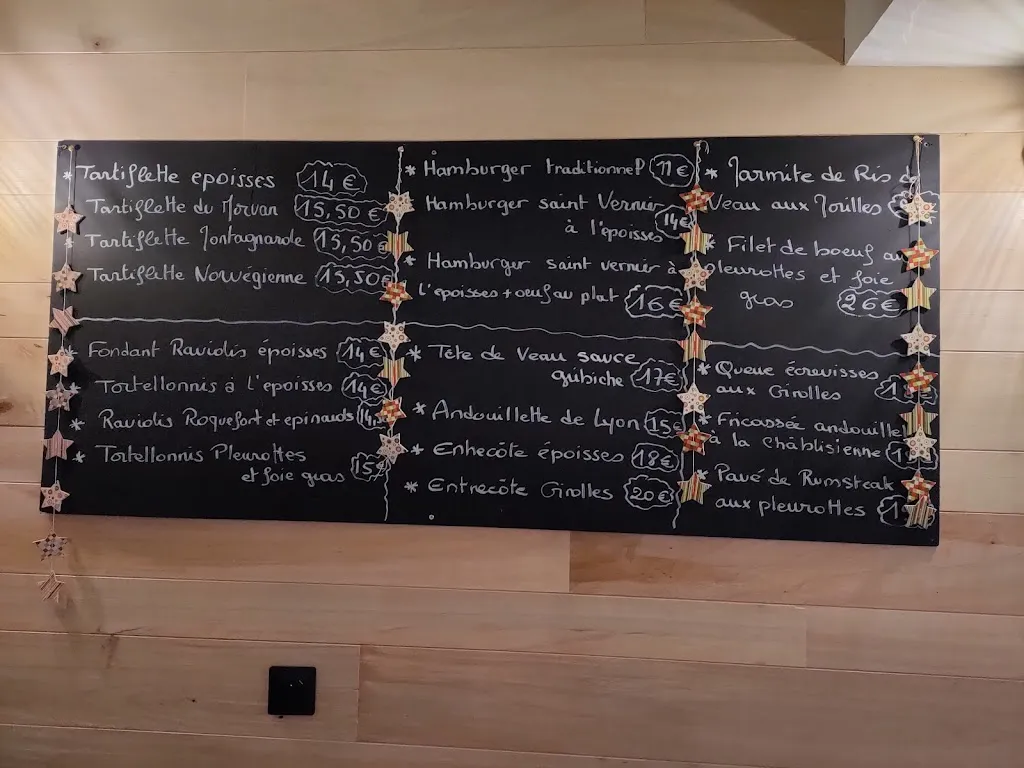 * Tartiflette epoisses 14 €
Tartiflette du Morvan 15,50 €
Tartiflette Montagnarde 15,50 €
Tartiflette Norvégienne 15,50€
* Fondant Raviolis époisses 14 €
* Tortellonnis à l'epoisses 14 €
* Raviolis Roquefort et epinards 14
* Tortellonnis Pleurottes
et foie gras 15€
* Hamburger traditionnel 11 €
Hamburger saint Vernier
à l'epoisses 14€
* Hamburger saint vernier à
l'epoisses + oeuf au plat 16 €
* Tête de Veau sauce
gribiche 17€
* Andouillette de Lyon 15€
* Entrecôte époisses 18€
* Entrecôte Girolles 20€
* Marmite de Ris de
Veau aux Morilles
* Filet de boeuf au
pleurottes et foie
gras 26€
* Queue écrevisses
aux Girolles
* Fricassée andouille
à la Châblisienne
* Pavé de Rumsteak
aux pleurottes